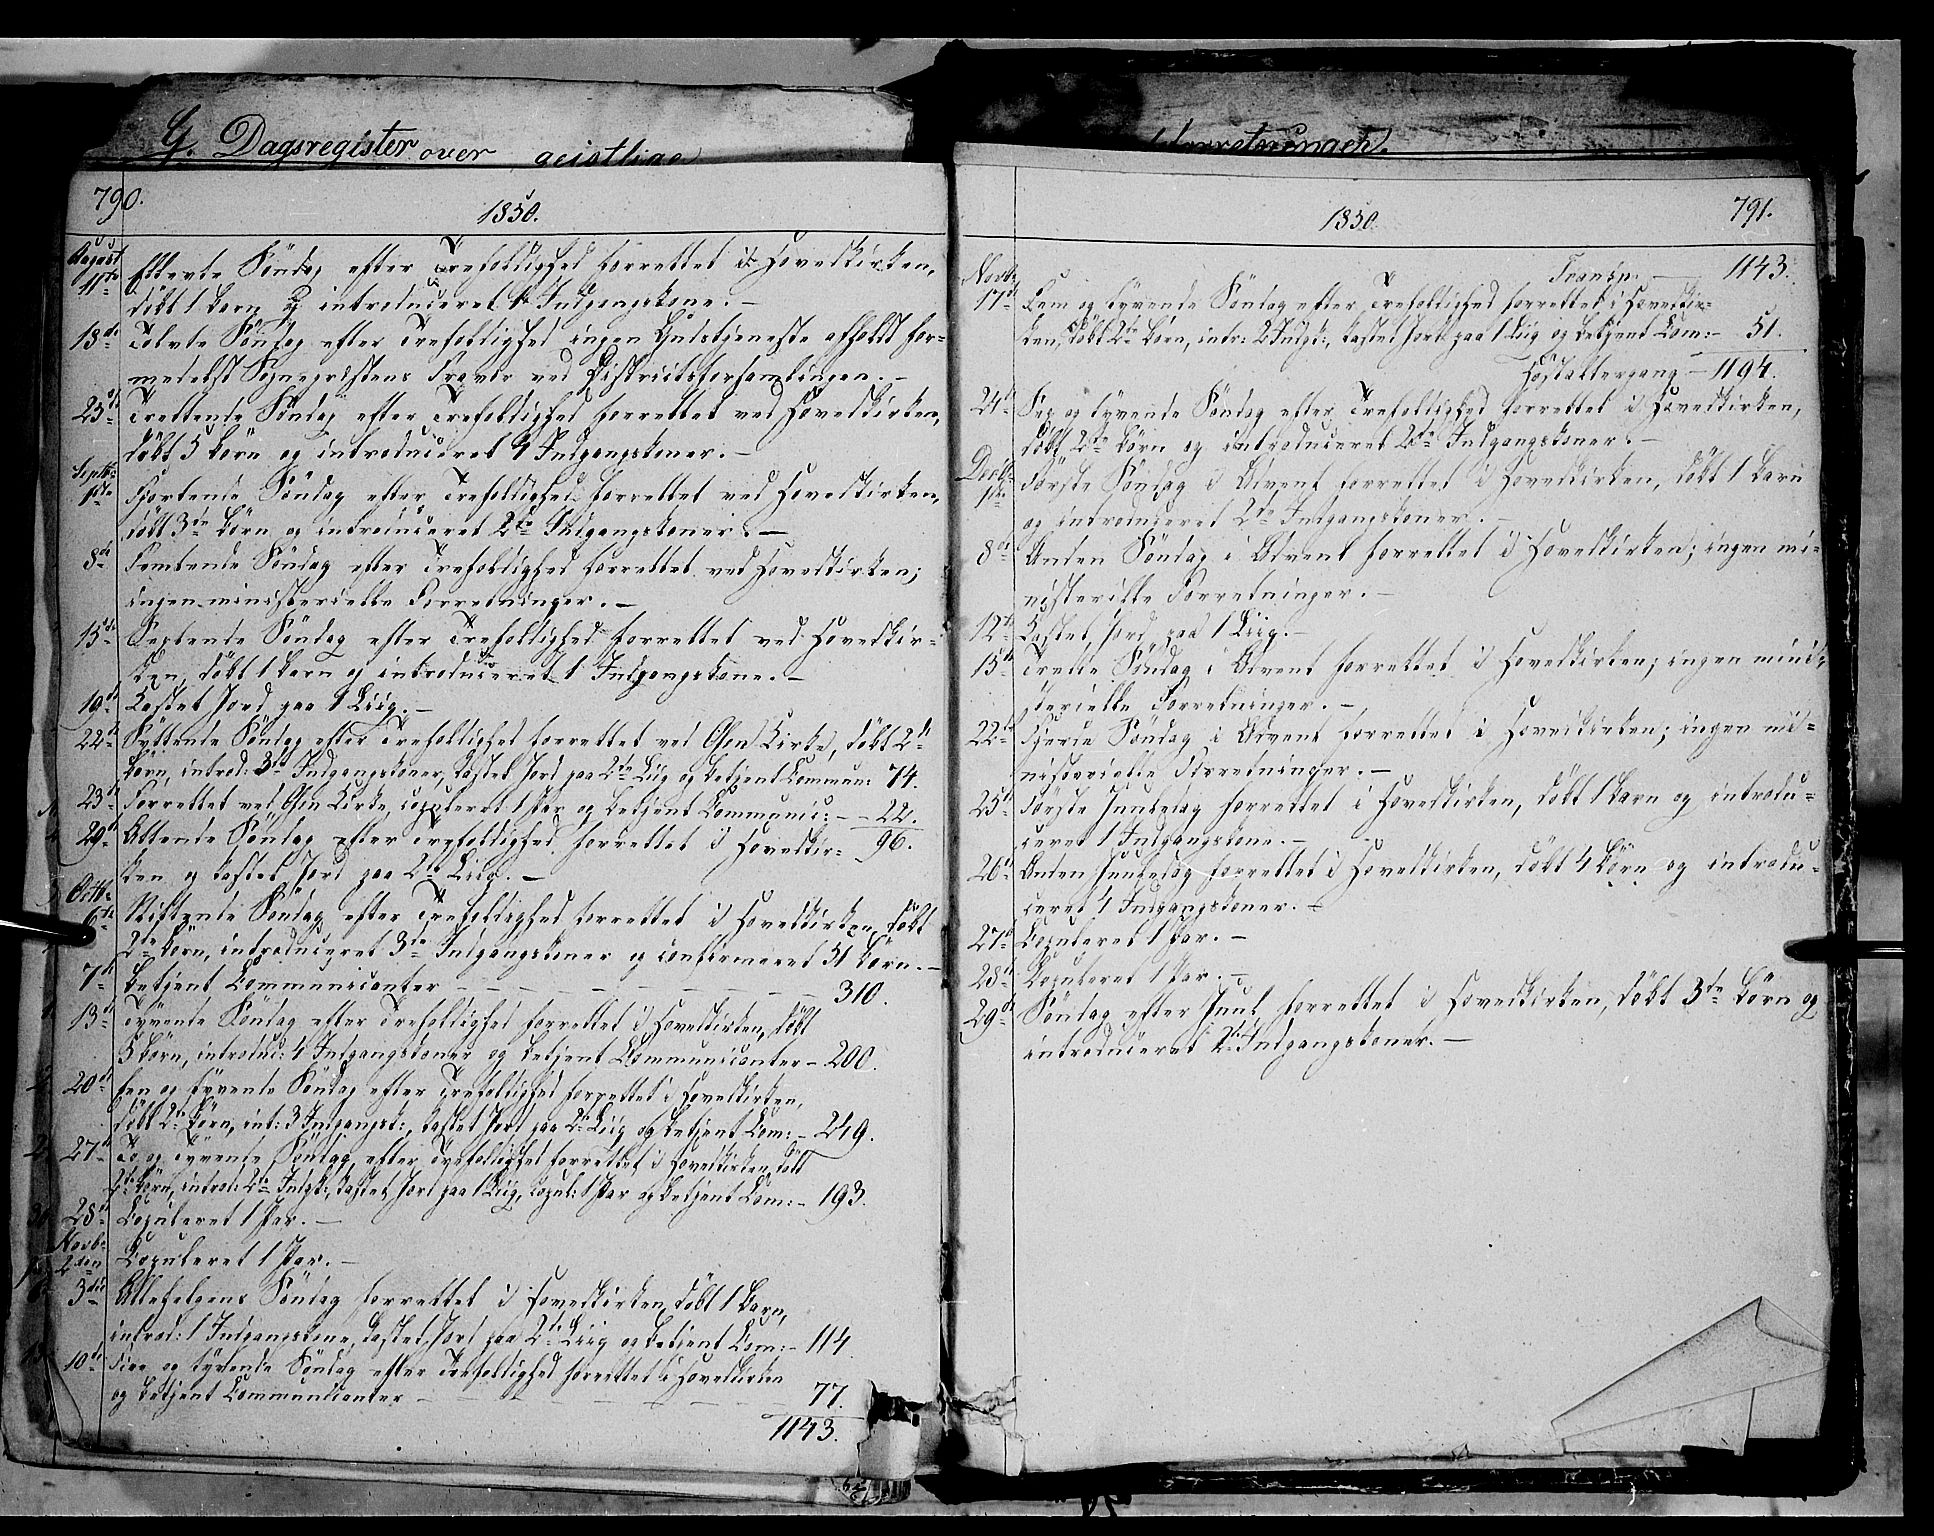 G. Dagsregister over geistlige
790.
1850.
August
11te Ellevte Söndag efter Trefoldighed forrettet i Hovedkirken,
döbt 1 barn og introduceret 1 Indgangskone. –
18de Tolvte Söndag efter Trefoldighed ingen Gudstjeneste afholdt for-
medelst Sognepræstens Fravær ved Districtsforsamlingen. –
25de Trettende Söndag efter Trefoldighed forrettet ved Hovedkirken,
döbt 5 börn og introduceret 4 Indgangskoner. –
Septbr
1ste Fjortende Söndag efter Trefoldighed forrettet ved Hovedkirken,
döbt 3de börn og introduceret 2de Indgangskoner. –
8de Femtende Söndag efter Trefoldighed forrettet ved Hovedkirken;
ingen ministerielle Forretninger. –
15de Sextende Söndag efter Trefoldighed forrettet ved Hovedkir-
ken, döbt 1 barn og introduceret 1 Indgangskone. –
19de Kastet Jord paa 1 Liig. –
22de Syttende Söndag efter Trefoldighed forrettet ved Kirke, döbt 2de
börn, introd: 3de Indgangskoner, kastet Jord paa 2de Liig og betjent Commun: 74.
23de Forrettet ved Kirke, copuleret 1 Par og betjent Communic: – 22.
29de Attende Söndag efter Trefoldighed forrettet i Hovedkir- 96.
ken og kastet Jord paa 2de Liig. –
Octbr
6te Nittende Söndag efter Trefoldighed forrettet i Hovedkirken, döbt
2de börn, introduceret 3de Indgangskoner og confirmeret 31 börn. –
7de Betjent Communicanter – – – – – – – – 310.
13de Tyvende Söndag efter Trefoldighed forrettet i Hovedkirken, döbt
5 börn, introdu: 4 Indgangskoner og betjent Communicanter – 200.
20de En og tyvende Söndag efter Trefoldighed forrettet i Hovedkirken,
döbt 2de börn, int: 3 Indgangsk:, kastet Jord paa 2de Liig og betjent Com: – 249.
27de To og tyvende Söndag efter Trefoldighed forrettet i Hovedkirken, döbt
2de börn, introd: 2de Indgk:, kastet Jord paa 1 Liig, copul: 1 Par og betjent Com: – 193.
28de Copuleret 1 Par. –
Novbr
2den Copuleret 1 Par. –
3die Allehelgens Söndag forrettet i Hovedkirken, döbt 1 barn,
introd: 1 Indgangskone, kastet Jord paa 2de Liig og betjent Com: – 114
10de Fire og tyvende Söndag efter Trefoldighed forrettet i Hovedkirken
og betjent Communicanter – – – – – – – 77.
1143.
Forretninger.
791.
1850.
Transp. – 1143.
Novbr
17de Fem og tyvende Söndag efter Trefoldighed forrettet i Hovedkir-
ken, döbt 2de börn, intr: 2 Indgk:, kastet Jord paa 1 Liig og betjent Com: – 51.
Höstaltergang – 1194.
24de Sex og tyvende Söndag efter Trefoldighed forrettet i Hovedkirken,
döbt 2de börn og introduceret 2de Indgangskoner. –
Decbr
1ste Förste Söndag i Advent forrettet i Hovedkirken, döbt 1 barn
og introduceret 2de Indgangskoner. –
8de Anden Söndag i Advent forrettet i Hovedkirken; ingen mi-
nisterielle Forretninger. –
12te Kastet Jord paa 1 Liig. –
15de Tredie Söndag i Advent forrettet i Hovedkirken; ingen mini-
sterielle Forretninger. –
22de Fjerde Söndag i Advent forrettet i Hovedkirken; ingen mi-
nisterielle Forretninger. –
25de Förste Juuledag forrettet i Hovedkirken, döbt 1 barn og introdu-
ceret 1 Indgangskone. –
26de Anden Juuledag forrettet i Hovedkirken, döbt 4 börn og introdu-
ceret 4 Indgangskoner. –
27de Copuleret 1 Par. –
28de Copuleret 1 Par. –
29de Söndag efter Juul forrettet i Hovedkirken, döbt 3de börn og
introduceret 2de Indgangskoner. –